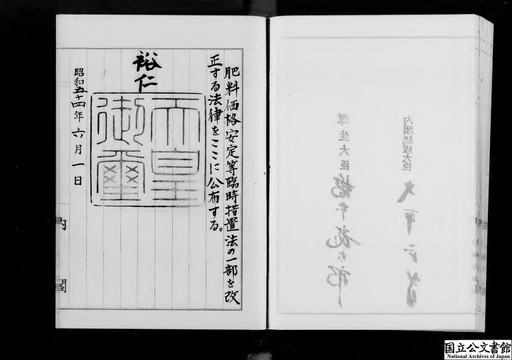 肥料価格安定等臨時措置法の一部を改
正する法律をここに公布する。
裕仁
天皇
御璽
昭和五十四年六月一日
内閣
内閣総理大臣
大平正芳
厚生大臣
国立公文書館
National Archives of Japan